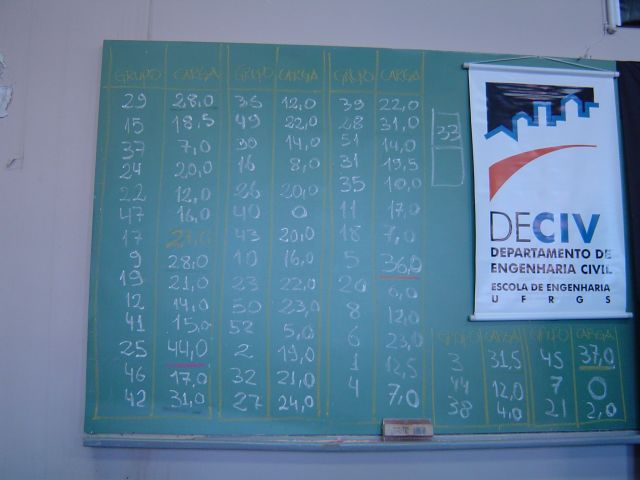 GRUPO CARGA GRUPO CARGA GRUPO CARGA
29 28,0 35 12,0 39 22,0
15 18,5 49 22,0 28 31,0
37 7,0 30 14,0 51 14,0
24 20,0 16 8,0 31 19,5
22 12,0 26 20,0 35 10,0
47 16,0 40 0 11 17,0
17 21,0 43 20,0 18 7,0
9 28,0 10 16,0 5 36,0
19 21,0 23 22,0 20 6,0
12 14,0 50 23,0 8 12,0
41 15,0 52 5,0 6 23,0
25 44,0 2 19,0 1 12,5
46 17,0 32 21,0 4 7,0
42 31,0 27 24,0
DECIV
DEPARTAMENTO DE
ENGENHARIA CIVIL
ESCOLA DE ENGENHARIA
UFRGS
GRUPO CARGA GRUPO CARGA
3 31,5 45 37,0
44 12,0 7 0
38 4,0 21 2,0